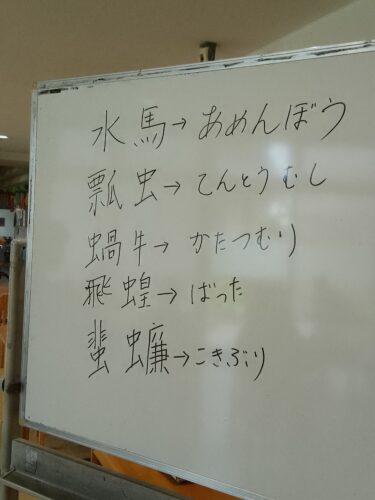 水馬→あめんぼう
瓢虫→てんとうむし
蝸牛→かたつむり
飛蝗→ばった
蜚蠊→こきぶり